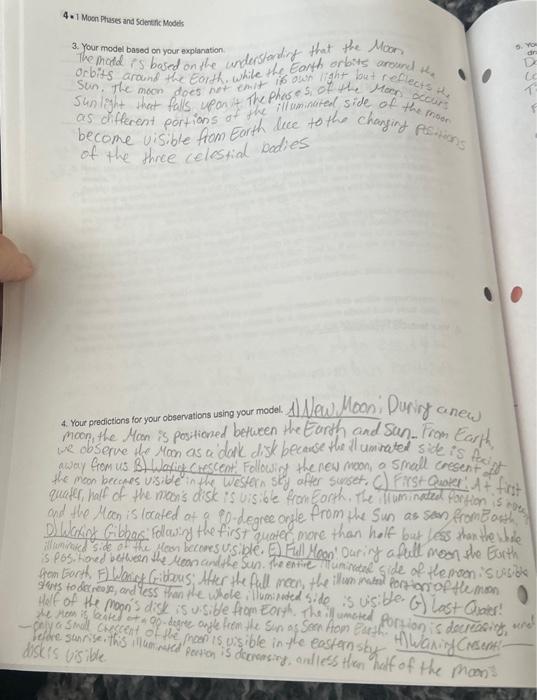 4•1 Moon Phases and Scientific Models
3. Your model based on your explanation.
The model is based on the understanding that the Moon
orbits around the Earth, while the Earth orbits around the
Sun. The moon does not emit its own light but reflects the
Sunlight that falls upon it. The phases of the Moon occurs
as different portions of the illuminated side of the moon
become visible from Earth due to the changing positions
of the three celestial bodies
5. You
4. Your predictions for your observations using your model. A) New Moon: During a new
moon, the Moon is positioned between the Earth and Sun. From Earth,
we observe the Moon as a dark disk because the illuminated side is
away from us B) Waxing Crescent: Following the new moon, a small cresent of
the moon becomes visible in the western sky after sunset. C) First Quater: At first
quater, half of the moon's disk is visible from Earth. The illuminated portion is
and the Moon is located at a 90-degree angle from the Sun as seen from Earth
D) Waxing Gibbous: Following the first quater, more than half but less than the whole
illuminated side of the Moon becomes visible. E) Full Moon: During a full moon the Earth
is positioned between the Moon and the Sun. The entire illuminated side of the moon is visible
from Earth. F) Gibbous: After the full moon, the illuminated portion of the moon
starts to decrease, and less than the whole illuminated side is visible. G) Last Quater:
Half of the moon's disk is visible from Earth. The illumated portion is decreasing, and
the Moon is located at a 90-degree angle from the Sun as seen from Earth. H) Waning Cresent:
only a small crescent of the moon is visible in the eastern sky
before sunrise. This illuminated portion is decreasing, and less than half of the moon's
disk is visible